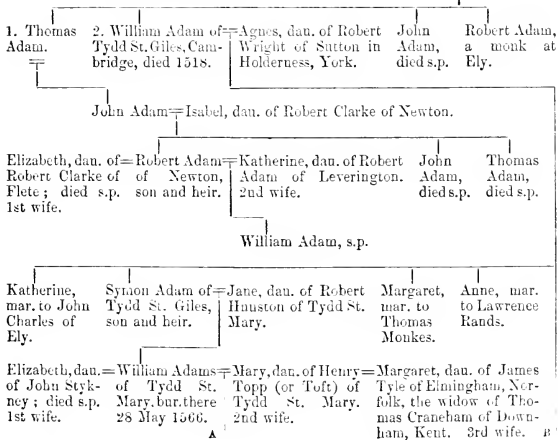 1. Thomas Adam.
2. William Adam of Tydd St. Giles, Cambridge, died 1518.
Agnes, dau. of Robert Wright of Sutton in Holderness, York.
John Adam, died s.p.
Robert Adam, a monk at Ely.
John Adam
Isabel, dau. of Robert Clarke of Newton.
Elizabeth, dau. of Robert Clarke of Flete ; died s.p. 1st wife.
Robert Adam of Newton, son and heir.
Katherine, dau. of Robert Adam of Leverington. 2nd wife.
John Adam, died s.p.
Thomas Adam, died s.p.
William Adam, s.p.
Katherine, mar. to John Charles of Ely.
Symon Adam of Tydd St. Giles, son and heir.
Jane, dau. of Robert Hunston of Tydd St. Mary.
Margaret, mar. to Thomas Monkes.
Anne, mar. to Lawrence Rands.
Elizabeth, dau. of John Stykney ; died s.p. 1st wife.
William Adams of Tydd St. Mary. bur. there 28 May 1566.
A
Mary, dau. of Henry Topp (or Toft) of Tydd St. Mary. 2nd wife.
Margaret, dau. of James Tyle of Elmingham, Norfolk, the widow of Thomas Craneham of Downham, Kent. 3rd wife.
B